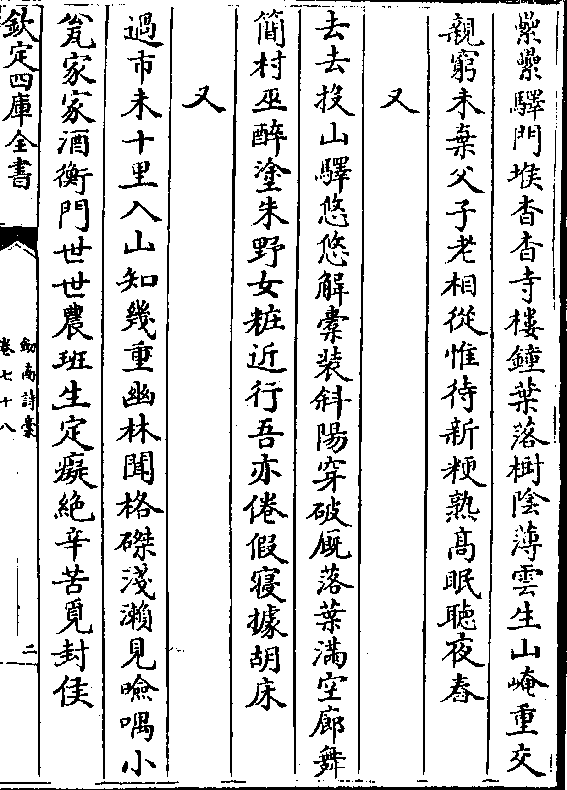 纍纍驛門堠杳杳寺樓鐘葉落樹陰薄雲生山崦重交
親窮未棄父子老相從惟待新粳熟髙眠聴夜舂
又
去去投山驛悠悠解槖装斜陽穿破厩落葉滿空廊舞
簡村巫醉塗朱野女粧近行吾亦倦假寝據胡床
又
過市未十里入山知幾重幽林聞格磔淺瀬見噞喁小
瓮家家酒衡門世世農班生定癡絶辛苦覓封侯
欽定四庫全書
劒南詩槀
卷七十八
二